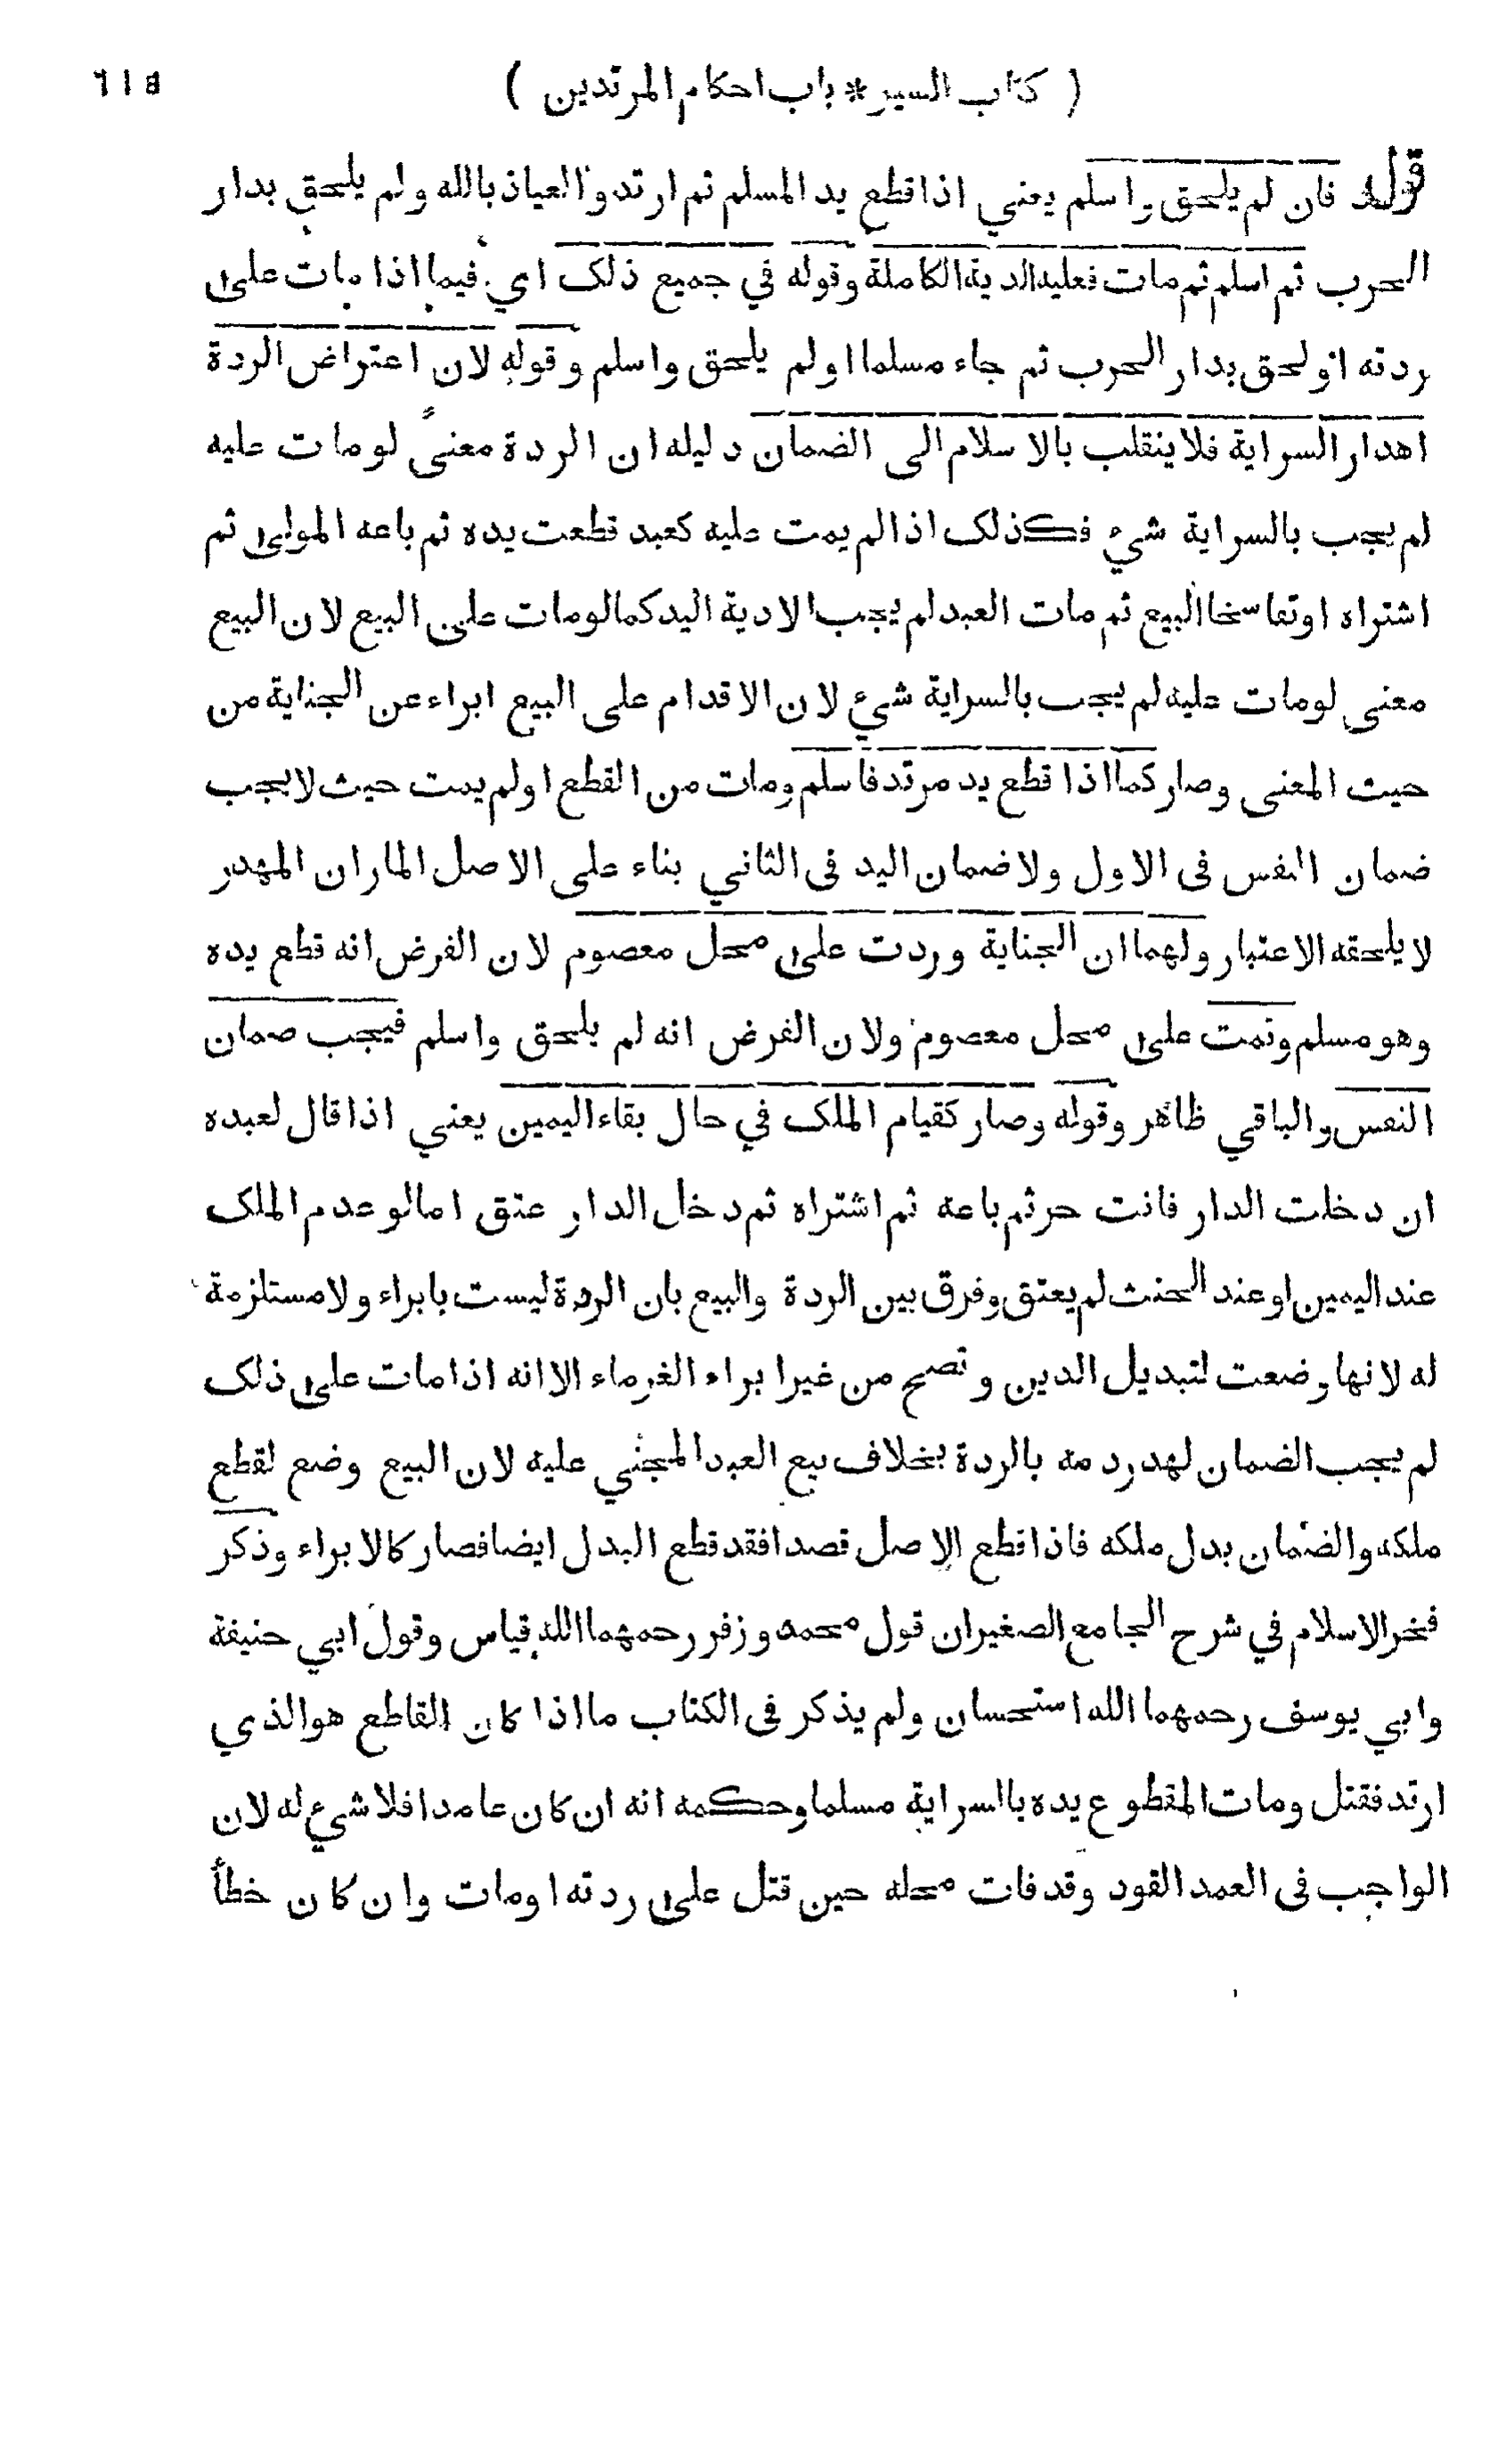 ( كتاب السير * باب احكام المرتدين )
قوله فان لم يلحق واسلم يعني اذا قطع يد المسلم ثم ارتد والعياذ بالله ولم يلحق بدار
الحرب ثم اسلم ثم مات فعليه الدية الكاملة وقوله في جميع ذلك اي فيما اذا مات على
ردته او لحق بدار الحرب ثم جاء مسلما اولم يلحق واسلم وقوله لان اعتراض الردة
اهدار السراية فلا ينقلب بالاسلام الى الضمان دليله ان الردة معنىً لو مات عليه
لم يجب بالسراية شيء فكذلك اذا لم يمت عليه كعبد قطعت يده ثم باعه المولى ثم
اشتراه او تفاسخا البيع ثم مات العبد لم يجب الا دية اليد كما لو مات على البيع لان البيع
معنى لو مات عليه لم يجب بالسراية شيء لان الاقدام على البيع ابراء عن الجناية من
حيث المعنى وصار كما اذا قطع يد مرتد فاسلم ومات من القطع اولم يمت حيث لا يجب
ضمان النفس فى الاول ولا ضمان اليد فى الثاني بناء على الاصل المار ان المهدر
لا يلحقه الاعتبار ولهما ان الجناية وردت على محل معصوم لان الفرض انه قطع يده
وهو مسلم وتمت على محل معصوم ولان الفرض انه لم يلحق واسلم فيجب ضمان
النفس والباقي ظاهر وقوله وصار كقيام الملك في حال بقاء اليمين يعني اذا قال لعبده
ان دخلت الدار فانت حر ثم باعه ثم اشتراه ثم دخل الدار عتق اما لو عدم الملك
عند اليمين او عند الحنث لم يعتق وفرق بين الردة والبيع بان الردة ليست بابراء ولا مستلزمة
له لانها وضعت لتبديل الدين وتصح من غير ابراء الغرماء الا انه اذا مات على ذلك
لم يجب الضمان لهدر دمه بالردة بخلاف بيع العبد المجني عليه لان البيع وضع لقطع
ملكه والضمان بدل ملكه فاذا قطع الاصل قصدا فقد قطع البدل ايضا فصار كالابراء وذكر
فخر الاسلام في شرح الجامع الصغير ان قول محمد وزفر رحمهما الله قياس وقول ابي حنيفة
وابي يوسف رحمهما الله استحسان ولم يذكر فى الكتاب ما اذا كان القاطع هو الذي
ارتد فقتل ومات المقطوع يده بالسراية مسلما وحكمه انه ان كان عامدا فلا شيء له لان
الواجب فى العمد القود وقد فات محله حين قتل على ردته او مات وان كان خطأ